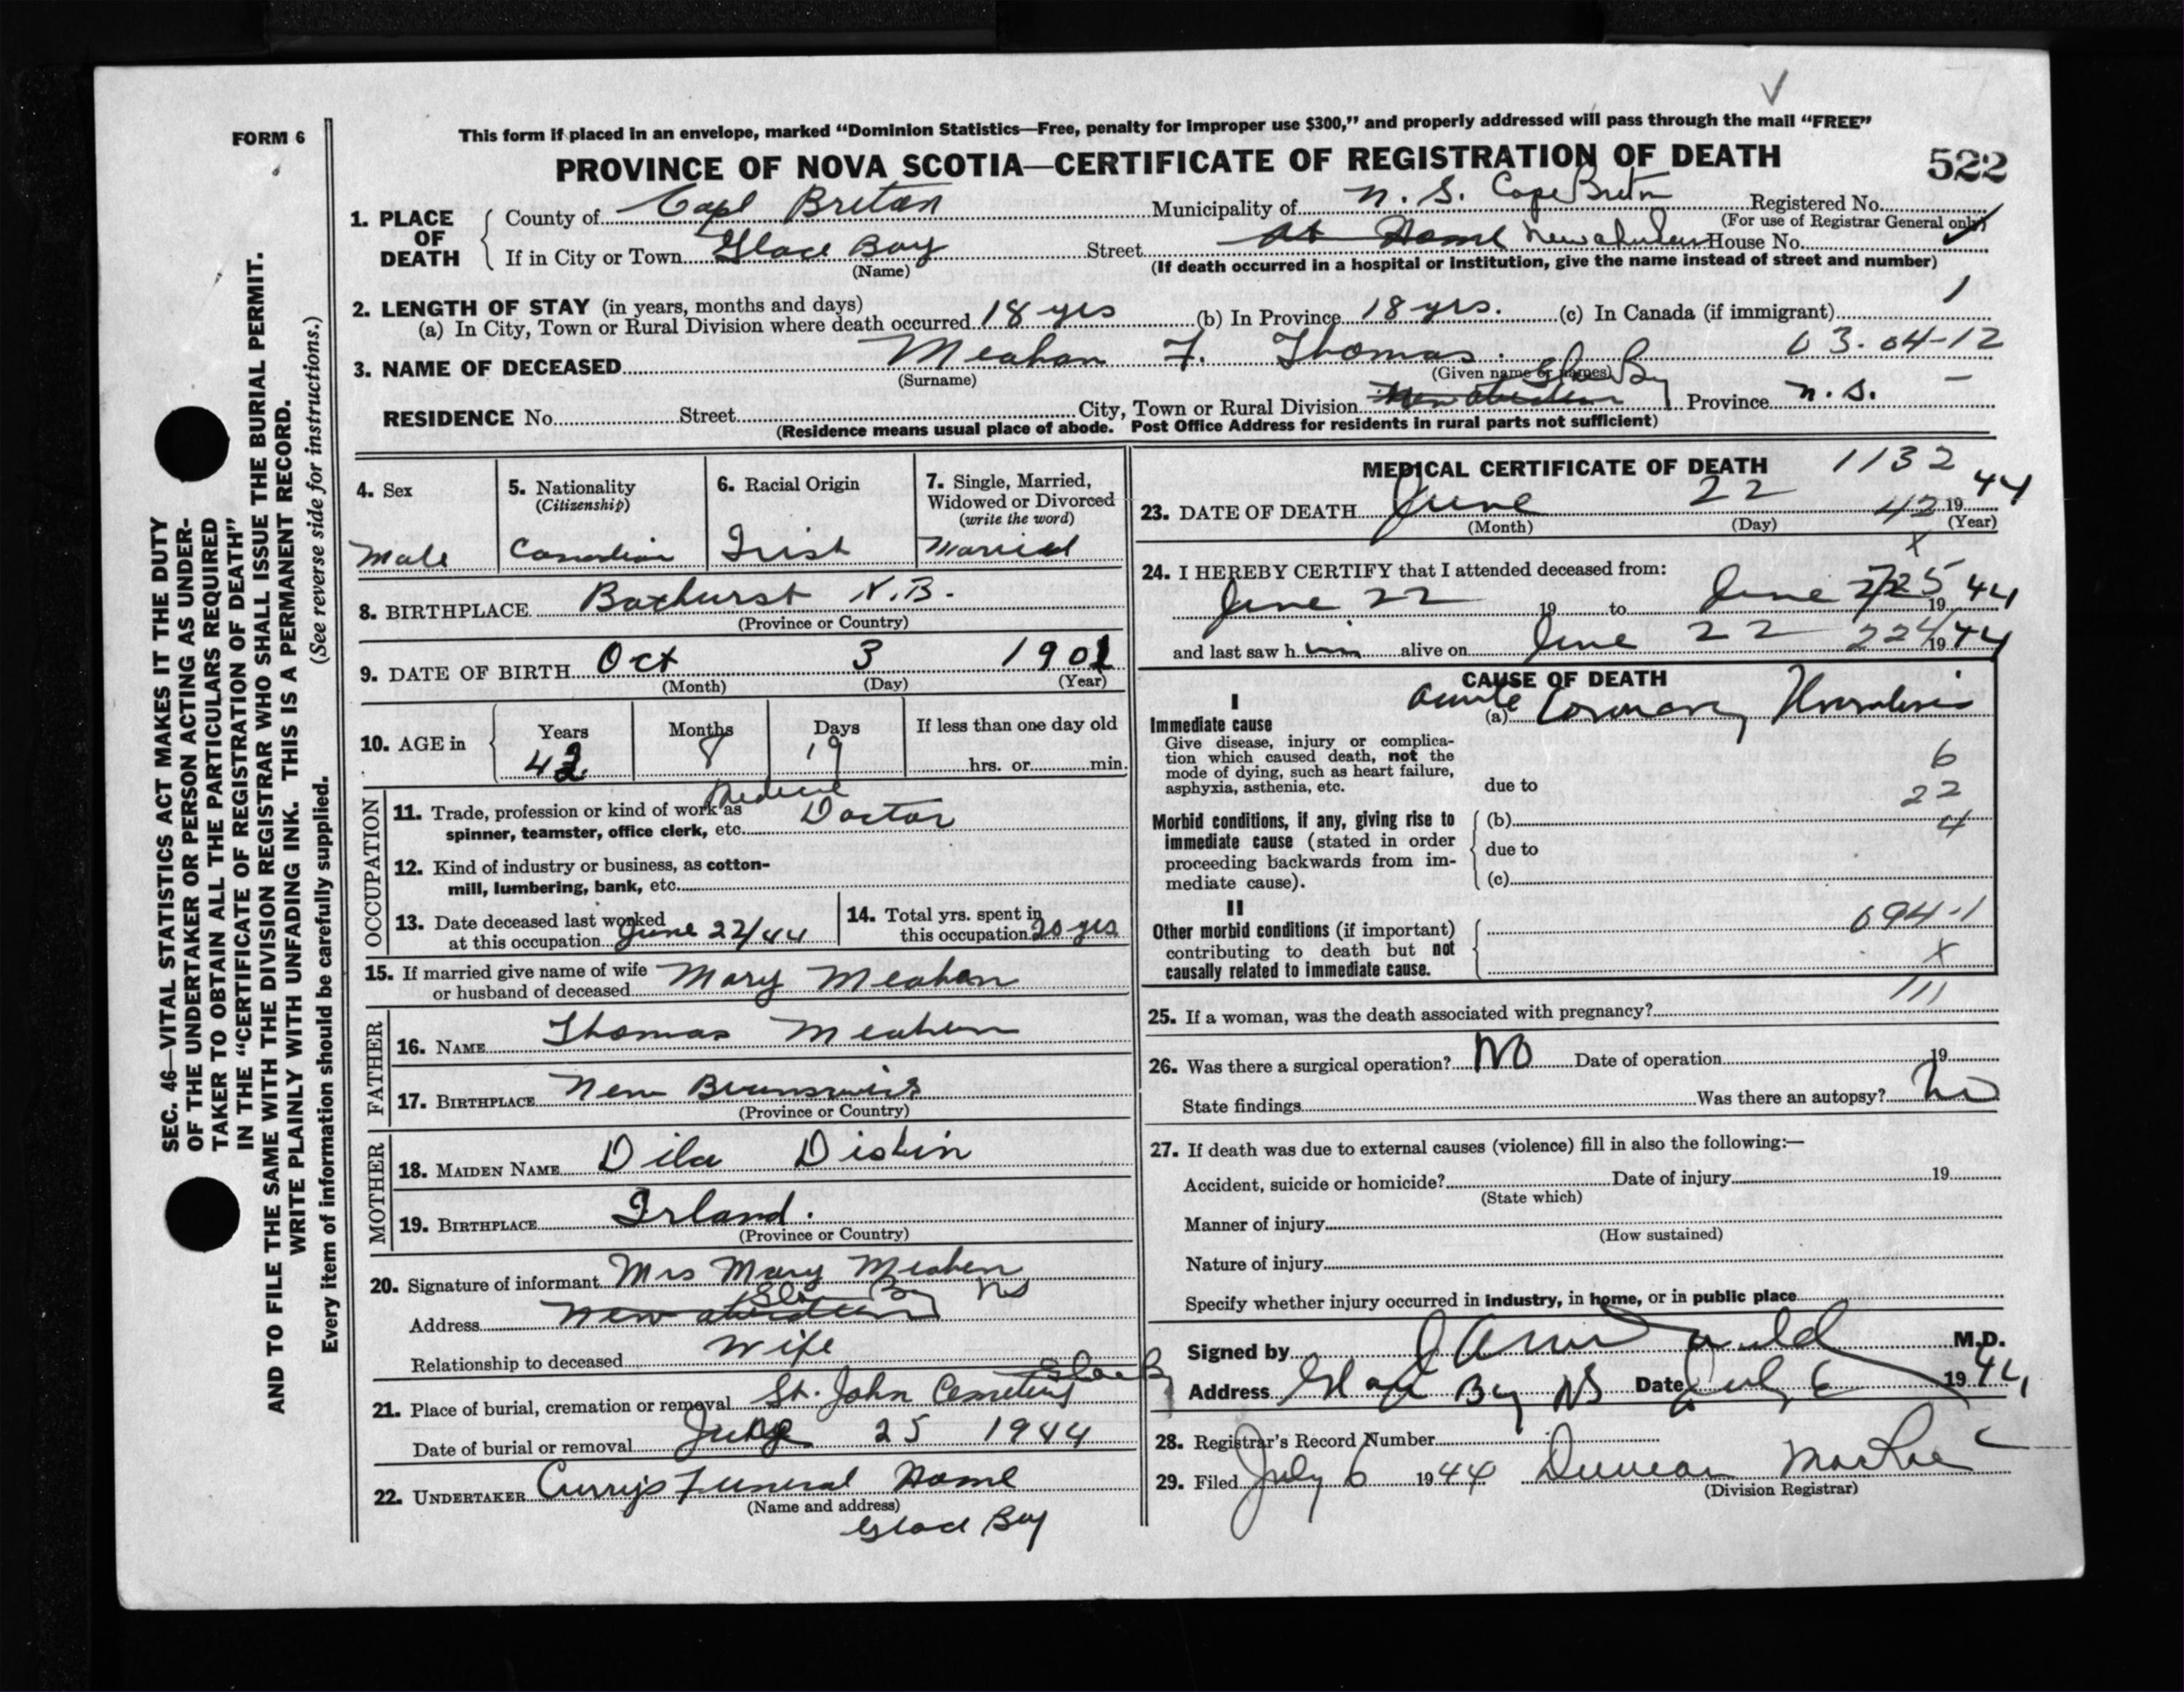 FORM 6
This form if placed in an envelope, marked "Dominion Statistics—Free, penalty for improper use $300," and properly addressed will pass through the mail "FREE"
PROVINCE OF NOVA SCOTIA—CERTIFICATE OF REGISTRATION OF DEATH
522
1. PLACE OF DEATH
County of Cape Breton Municipality of N. S. Cape Breton Registered No.
(For use of Registrar General only)
If in City or Town Glace Bay Street At Home House No.
(Name) (If death occurred in a hospital or institution, give the name instead of street and number)
2. LENGTH OF STAY (in years, months and days)
(a) In City, Town or Rural Division where death occurred 18 yrs (b) In Province 18 yrs. (c) In Canada (if immigrant) 1
3. NAME OF DECEASED Meahan F. Thomas. 03.04-12
(Surname) (Given name or names)
RESIDENCE No. Street City, Town or Rural Division New Aberdeen Glace Bay Province N.S. —
(Residence means usual place of abode. Post Office Address for residents in rural parts not sufficient)
4. Sex
Male
5. Nationality
(Citizenship)
Canadian
6. Racial Origin
Irish
7. Single, Married,
Widowed or Divorced
(write the word)
Married
8. BIRTHPLACE Bathurst N.B.
(Province or Country)
9. DATE OF BIRTH Oct 3 1901
(Month) (Day) (Year)
10. AGE in
Years Months Days If less than one day old
42 8 19 hrs. or min.
OCCUPATION
11. Trade, profession or kind of work as
spinner, teamster, office clerk, etc. Medical Doctor
12. Kind of industry or business, as cotton-
mill, lumbering, bank, etc.
13. Date deceased last worked
at this occupation June 22/44
14. Total yrs. spent in
this occupation 20 yrs
15. If married give name of wife
or husband of deceased Mary Meahan
FATHER
16. NAME Thomas Meahan
17. BIRTHPLACE New Brunswick
(Province or Country)
MOTHER
18. MAIDEN NAME Dila Diskin
19. BIRTHPLACE Irland.
(Province or Country)
20. Signature of informant Mrs Mary Meahen
Address New Aberdeen Glace Bay NS
Relationship to deceased Wife
21. Place of burial, cremation or removal St. John Cemetery Glace B
Date of burial or removal 25 1944
22. UNDERTAKER Currys Funeral Home
(Name and address)
Glace Bay
MEDICAL CERTIFICATE OF DEATH 1132
23. DATE OF DEATH June 22 42 1944
(Month) (Day) (Year)
x
24. I HEREBY CERTIFY that I attended deceased from:
June 22 19 to June 25 1944
and last saw him alive on June 22 224 1944
CAUSE OF DEATH
I
Immediate cause
Give disease, injury or complica-
tion which caused death, not the
mode of dying, such as heart failure,
asphyxia, asthenia, etc.
(a) Acute Coronary Thrombosis
6
due to
22
Morbid conditions, if any, giving rise to
immediate cause (stated in order
proceeding backwards from im-
mediate cause).
(b) 4
due to
(c)
II
Other morbid conditions (if important)
contributing to death but not
causally related to immediate cause.
094-1
X
25. If a woman, was the death associated with pregnancy? 111
26. Was there a surgical operation? NO Date of operation 19
State findings Was there an autopsy? No
27. If death was due to external causes (violence) fill in also the following:—
Accident, suicide or homicide? Date of injury 19
(State which)
Manner of injury
(How sustained)
Nature of injury
Specify whether injury occurred in industry, in home, or in public place
Signed by M.D.
Address Glace Bay NS Date July 6 1944
28. Registrar's Record Number
29. Filed July 6 1944 Duncan MacRae
(Division Registrar)
SEC. 46—VITAL STATISTICS ACT MAKES IT THE DUTY
OF THE UNDERTAKER OR PERSON ACTING AS UNDER-
TAKER TO OBTAIN ALL THE PARTICULARS REQUIRED
IN THE "CERTIFICATE OF REGISTRATION OF DEATH"
AND TO FILE THE SAME WITH THE DIVISION REGISTRAR WHO SHALL ISSUE THE BURIAL PERMIT.
WRITE PLAINLY WITH UNFADING INK. THIS IS A PERMANENT RECORD.
Every item of information should be carefully supplied. (See reverse side for instructions.)